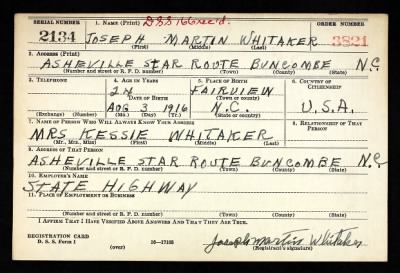 SERIAL NUMBER 1. NAME (Print) D.S.S. 16 Rec'd. ORDER NUMBER
2134 JOSEPH MARTIN WHITAKER 3821
(First) (Middle) (Last)
2. ADDRESS (Print)
ASHEVILLE STAR ROUTE BUNCOMBE N.C.
(Number and street or R. F. D. number) (Town) (County) (State)
3. TELEPHONE 4. AGE IN YEARS 5. PLACE OF BIRTH 6. COUNTRY OF CITIZENSHIP
24 FAIRVIEW
DATE OF BIRTH (Town or county)
AUG 3 1916 N.C. U.S.A.
(Exchange) (Number) (Mo.) (Day) (Yr.) (State or country)
7. NAME OF PERSON WHO WILL ALWAYS KNOW YOUR ADDRESS 8. RELATIONSHIP OF THAT PERSON
MRS KESSIE WHITAKER
(Mr., Mrs., Miss) (First) (Middle) (Last)
9. ADDRESS OF THAT PERSON
ASHEVILLE STAR ROUTE BUNCOMBE N.C
(Number and street or R. F. D. number) (Town) (County) (State)
10. EMPLOYER'S NAME
STATE HIGHWAY
11. PLACE OF EMPLOYMENT OR BUSINESS
(Number and street or R. F. D. number) (Town) (County) (State)
I AFFIRM THAT I HAVE VERIFIED ABOVE ANSWERS AND THAT THEY ARE TRUE.
REGISTRATION CARD
D. S. S. Form 1 (over) 16—17105 Joseph Martin Whitaker
(Registrant's signature)